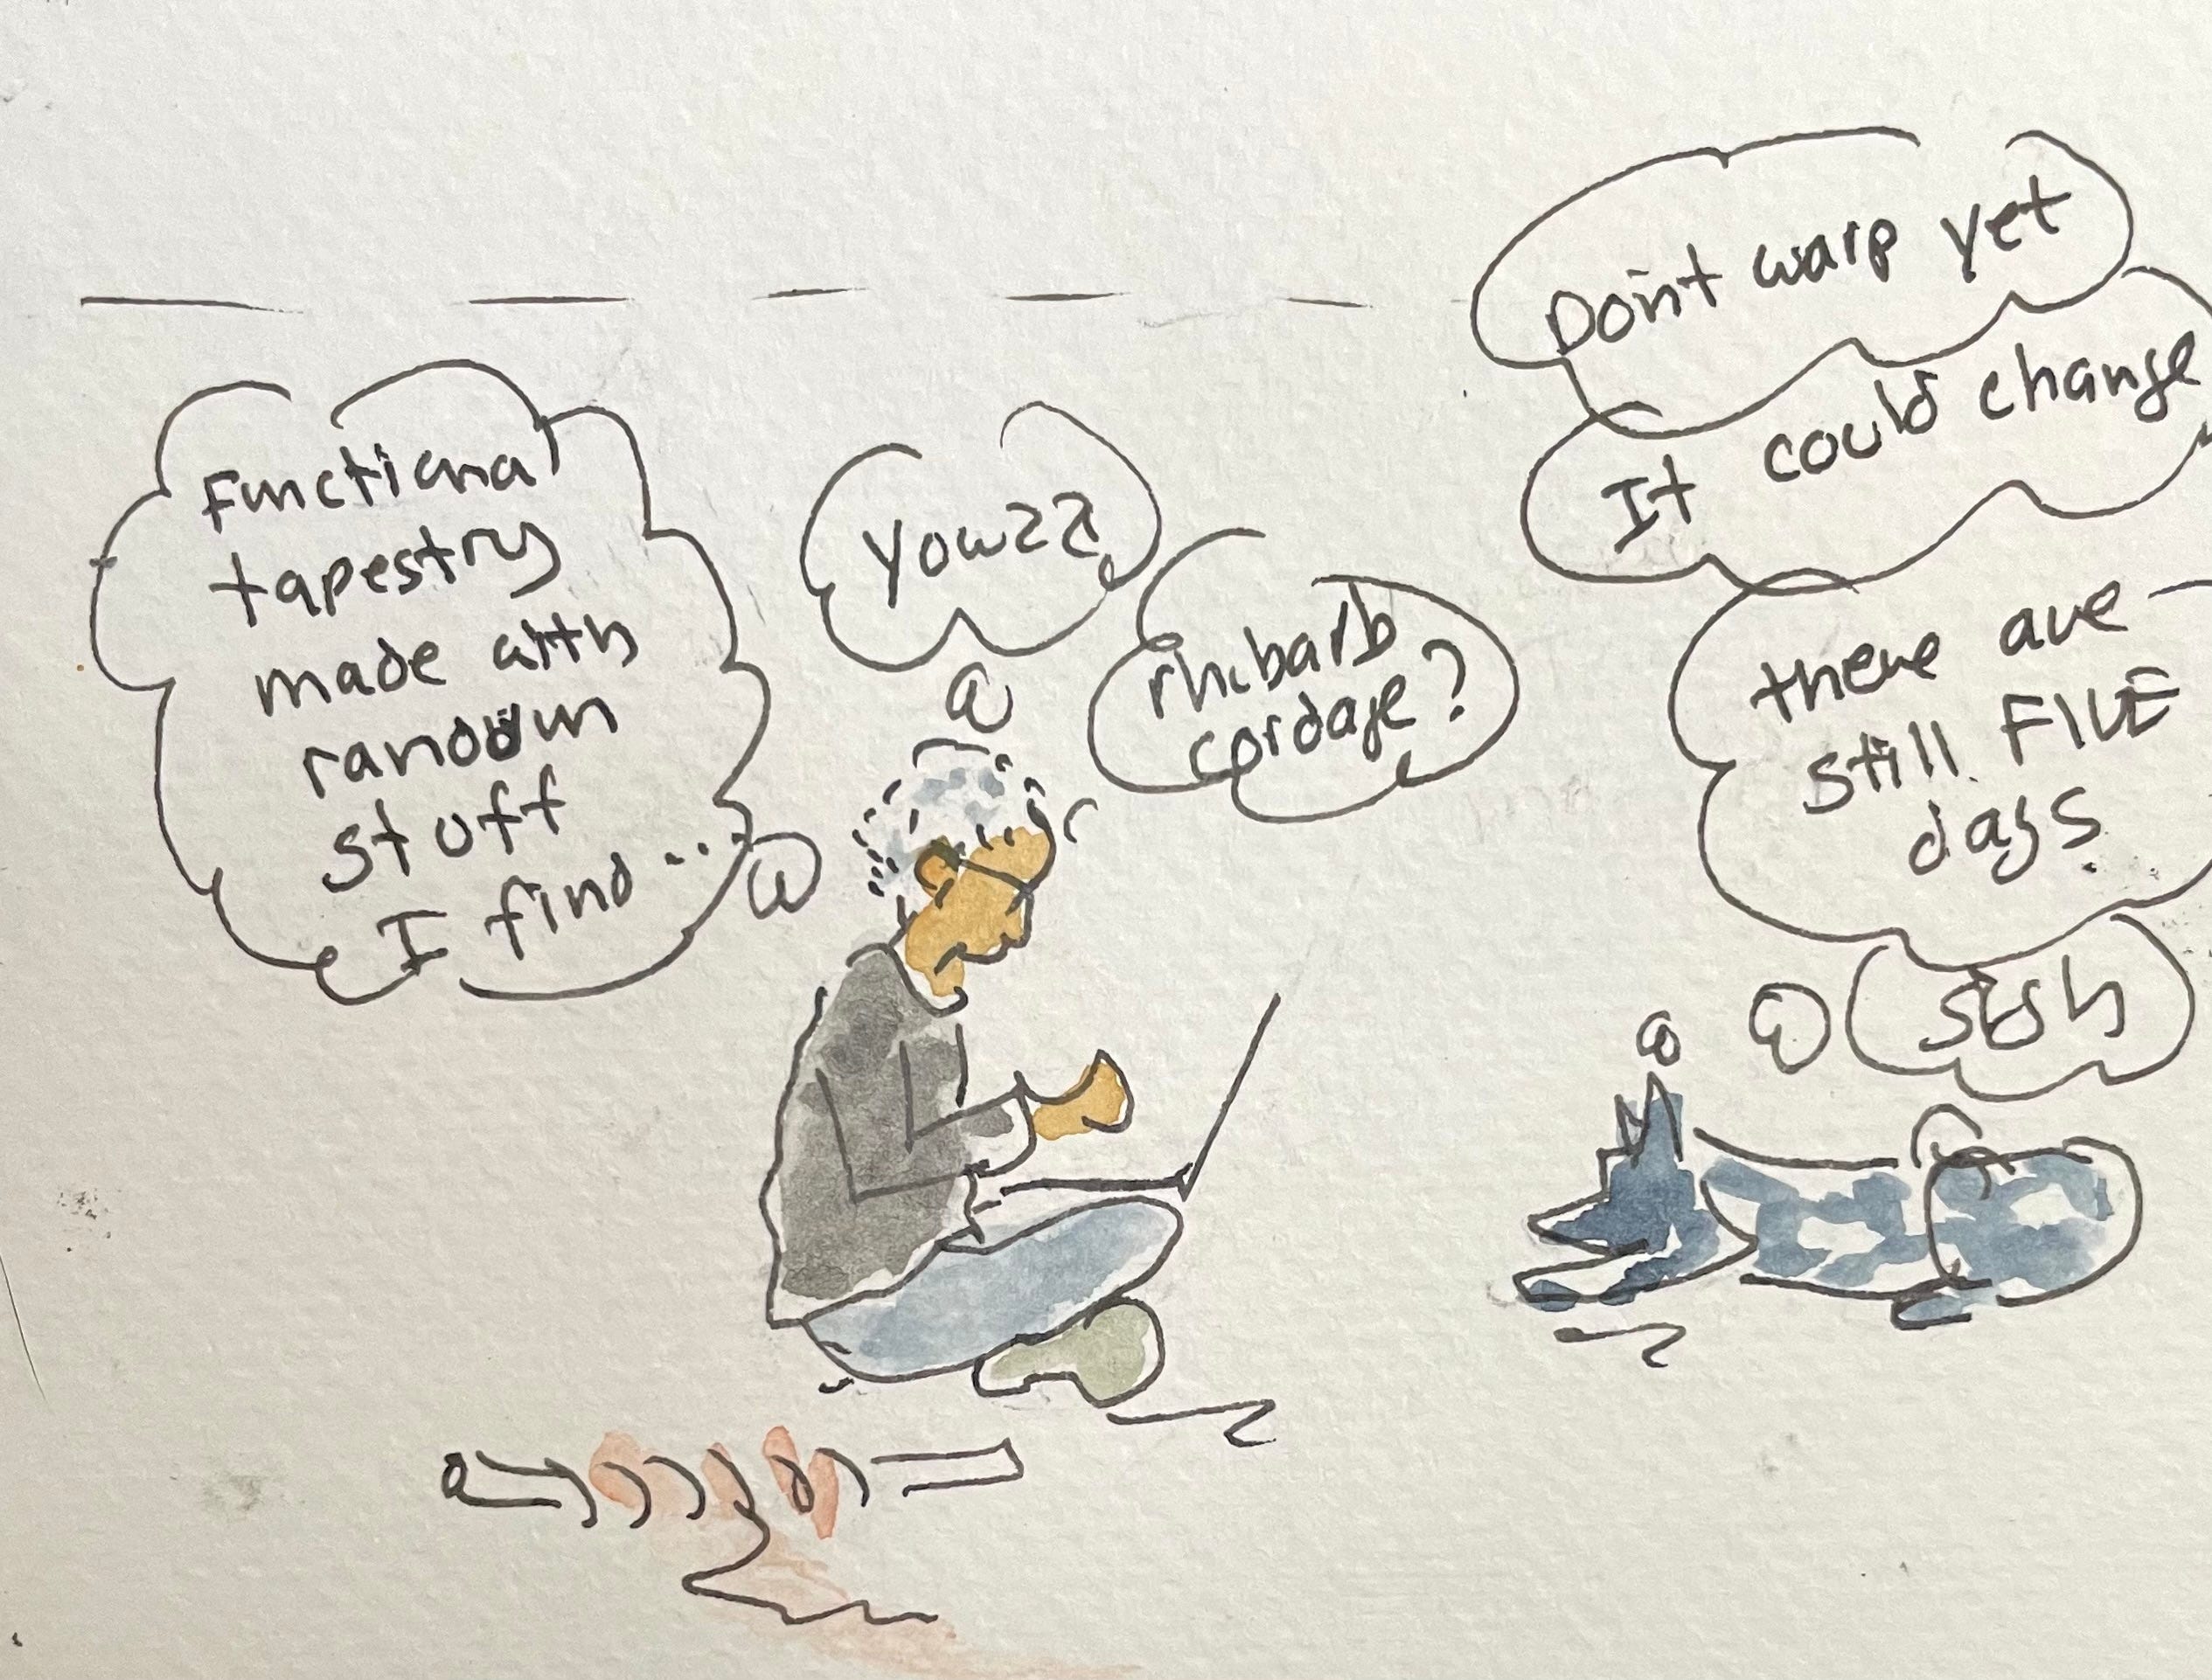 Functional
tapestry
made with
random
stuff
I find...
Yowzz
rhubarb
cordage?
Don't warp yet
It could change
there are
still FIVE
days.